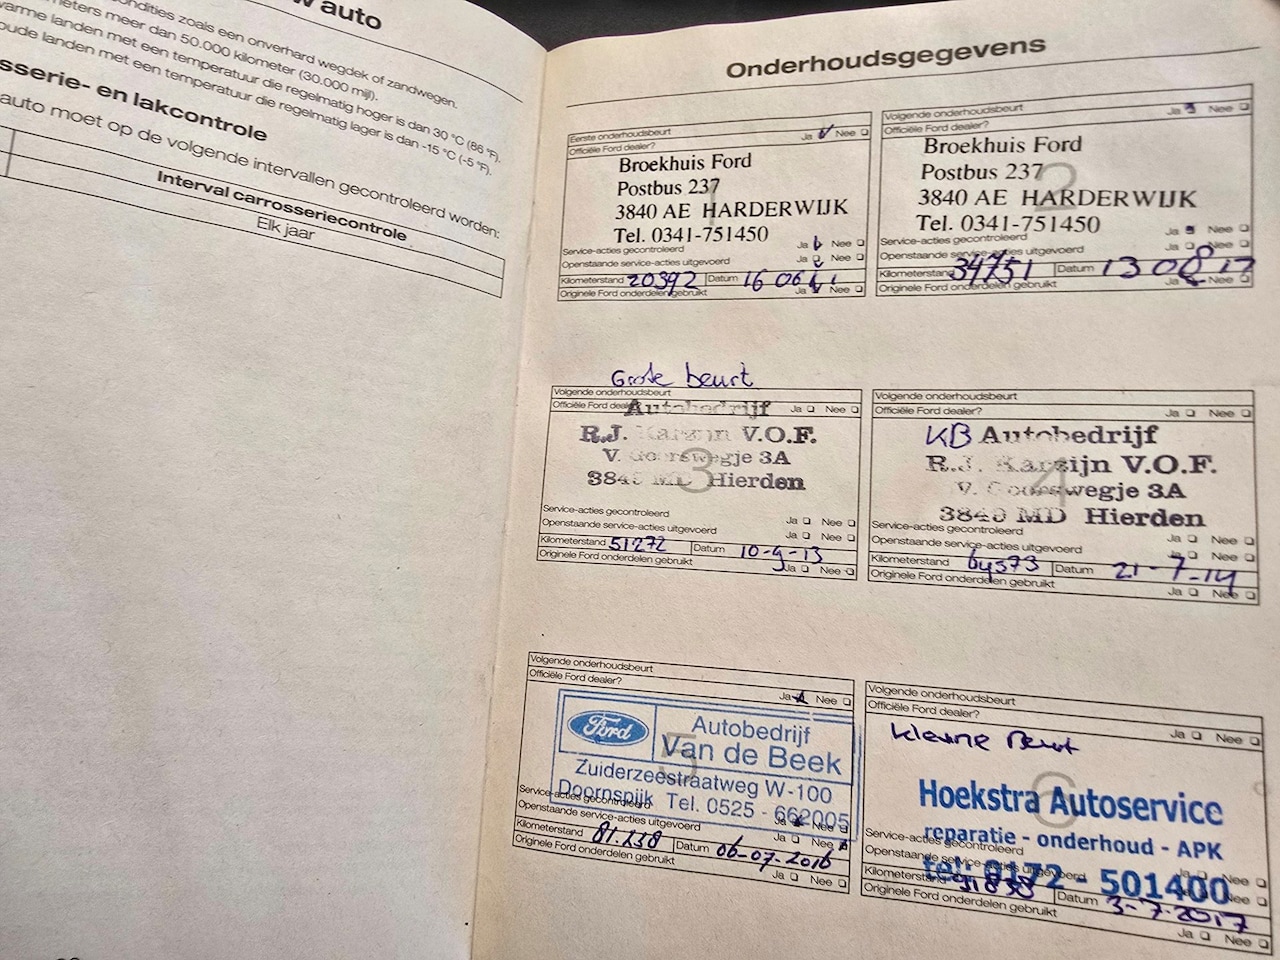 w auto
ondities zoals een onverhard wegdek of zandwegen.
meters meer dan 50.000 kilometer (30.000 mijl).
warme landen met een temperatuur die regelmatig hoger is dan 30 °C (86 °F).
oude landen met een temperatuur die regelmatig lager is dan -15 °C (-5 °F).
sserie- en lakcontrole
auto moet op de volgende intervallen gecontroleerd worden:
Interval carrosseriecontrole
Elk jaar
Onderhoudsgegevens
Eerste onderhoudsbeurt
Officiële Ford dealer? Ja Nee
1
Broekhuis Ford
Postbus 237
3840 AE HARDERWIJK
Tel. 0341-751450
Service-acties gecontroleerd Ja Nee
Openstaande service-acties uitgevoerd Ja Nee
Kilometerstand 20392 Datum 16 06 11
Originele Ford onderdelen gebruikt Ja Nee
Volgende onderhoudsbeurt
Officiële Ford dealer? Ja Nee
2
Broekhuis Ford
Postbus 237
3840 AE HARDERWIJK
Tel. 0341-751450
Service-acties gecontroleerd Ja Nee
Openstaande service-acties uitgevoerd Ja Nee
Kilometerstand 34751 Datum 13 08 12
Originele Ford onderdelen gebruikt Ja Nee
Grote beurt
Volgende onderhoudsbeurt
Officiële Ford dealer? Ja Nee
3
Autobedrijf
R.J. Karsijn V.O.F.
V. 3A
3840 MD Hierden
Service-acties gecontroleerd Ja Nee
Openstaande service-acties uitgevoerd Ja Nee
Kilometerstand 51272 Datum 10-9-13
Originele Ford onderdelen gebruikt Ja Nee
Volgende onderhoudsbeurt
Officiële Ford dealer? Ja Nee
4
KB Autobedrijf
R.J. Karsijn V.O.F.
V. 3A
3840 MD Hierden
Service-acties gecontroleerd Ja Nee
Openstaande service-acties uitgevoerd Ja Nee
Kilometerstand 64573 Datum 21-7-14
Originele Ford onderdelen gebruikt Ja Nee
Volgende onderhoudsbeurt
Officiële Ford dealer? Ja Nee
5
Ford
Autobedrijf
Van de Beek
Zuiderzeestraatweg W-100
Doornspijk Tel. 0525 - 662005
Service-acties gecontroleerd Ja Nee
Openstaande service-acties uitgevoerd Ja Nee
Kilometerstand 81.138 Datum 06-07-2016
Originele Ford onderdelen gebruikt Ja Nee
Volgende onderhoudsbeurt
Officiële Ford dealer? Ja Nee
6
kleine Beurt
Hoekstra Autoservice
reparatie - onderhoud - APK
tel: 0172 - 501400
Service-acties gecontroleerd Ja Nee
Openstaande service-acties uitgevoerd Ja Nee
Kilometerstand 91838 Datum 3-7-2017
Originele Ford onderdelen gebruikt Ja Nee